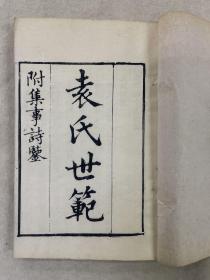 袁氏世範
附集事詩鑒